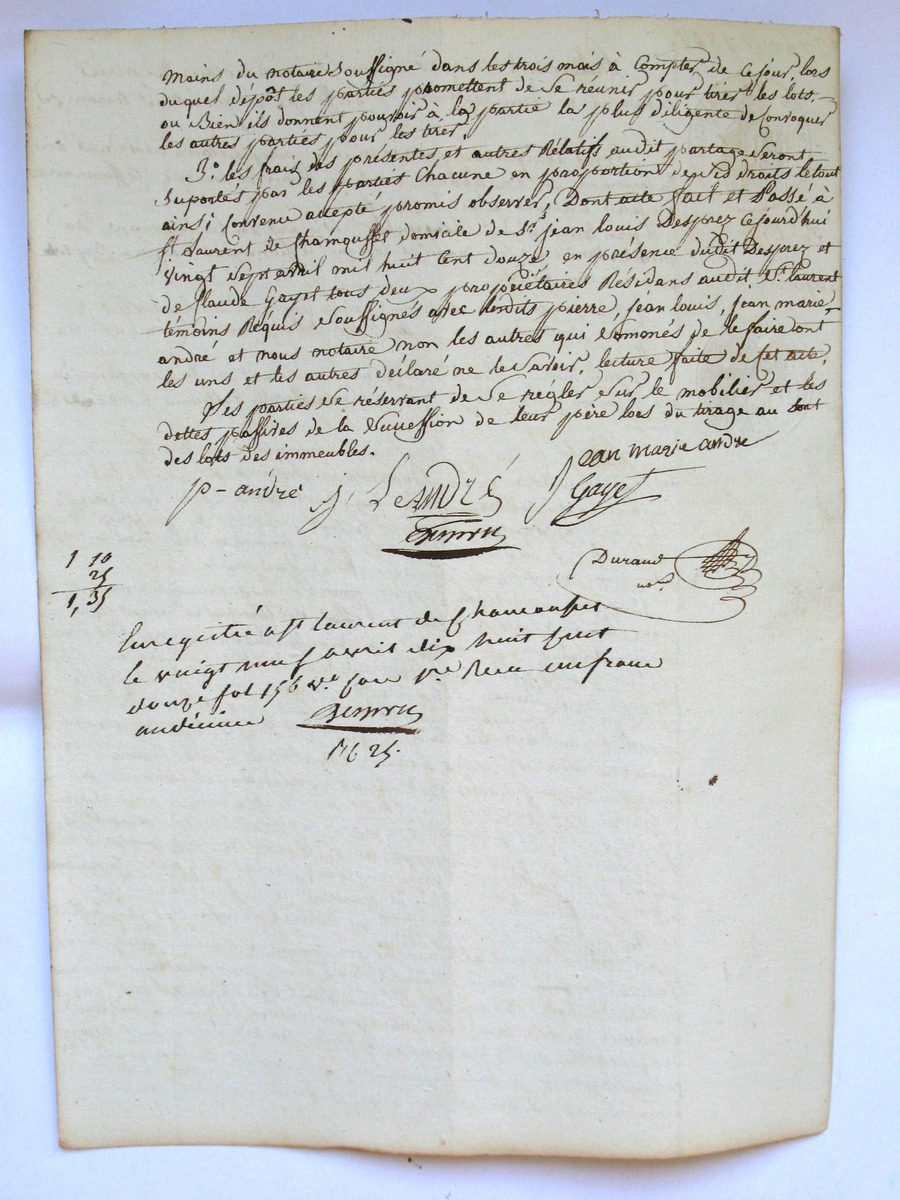 mains du notaire soussigné dans les trois mois à Compter de Ce jour, lors
duquel dépôt les parties promettent de Se réunir pour tirer les lots,
ou Bien ils donnent pouvoir à la partie la plus diligente de Convoquer
les autres parties pour les tirer.
3.o les frais des présentes et autres Rélatifs audit partage Seront
Suportés par les parties Chacune en proportion de Ses droits le tout
ainsi Convenu accepté promis observer, Dont acte fait et Passé à
St Laurent de Chamousset domicile de Sr. jean louis Desprez Cejourd'hui
vingt Sept avril mil huit Cent douze en présence dudit Desprez et
de Claude Gayet tous deux propriétaires Résidans audit St. laurent
témoins Réquis Soussignés avec lesdits pierre, jean louis, jean marie
andré et nous notaire non les autres qui Sommés de le faire ont
les uns et les autres déclaré ne le Savoir, lecture faite de Cet acte.
Les parties Se réservant de Se régler Sur le mobilier et les
dettes passives de la Succession de leur père lors du tirage au Sort
des lots des immeubles.
p- andré j. L ANDRÉ jean marie andre
Gayet
Durand
1 10
25
1, 35
Enregistré a St laurent de Chamousset
le vingt neuf avril dix huit Cent
douze fol 156 vo. Case 1re Recu un franc
un décime
1f 25.